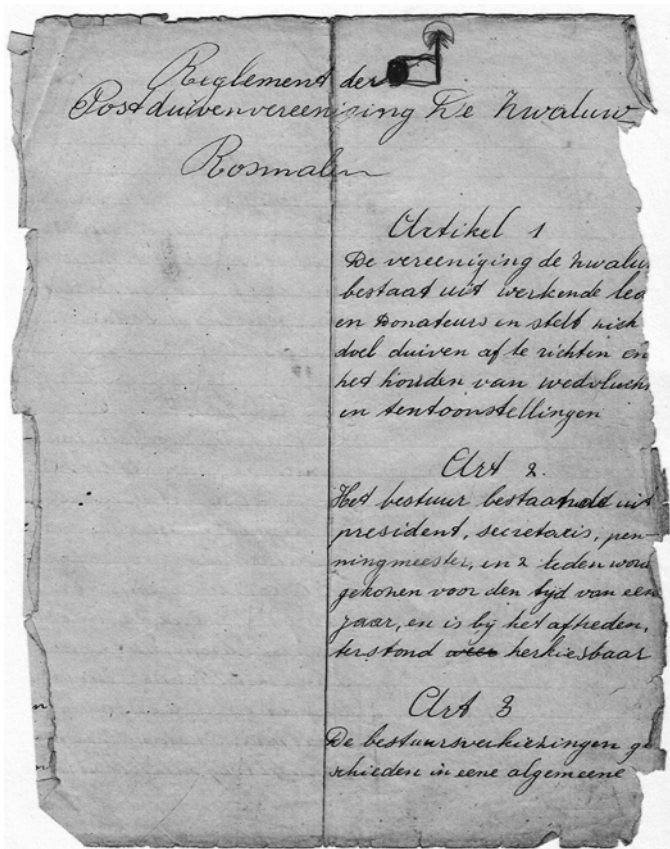 Reglement der
Postduivenvereeniging De Zwaluw
Rosmalen
Artikel 1
De vereeniging de Zwaluw
bestaat uit werkende led
en Donateurs en stelt zich
doel duiven af te richten en
het houden van wedvluch
en tentoonstellingen
Art 2.
Het bestuur bestaande uit
president, secretaris, pen-
ningmeester, en 2 leden word
gekozen voor den tijd van een
jaar, en is bij het aftreden,
terstond weer herkiesbaar
Art 3
De bestuursverkiezingen ge
schieden in eene algemeene